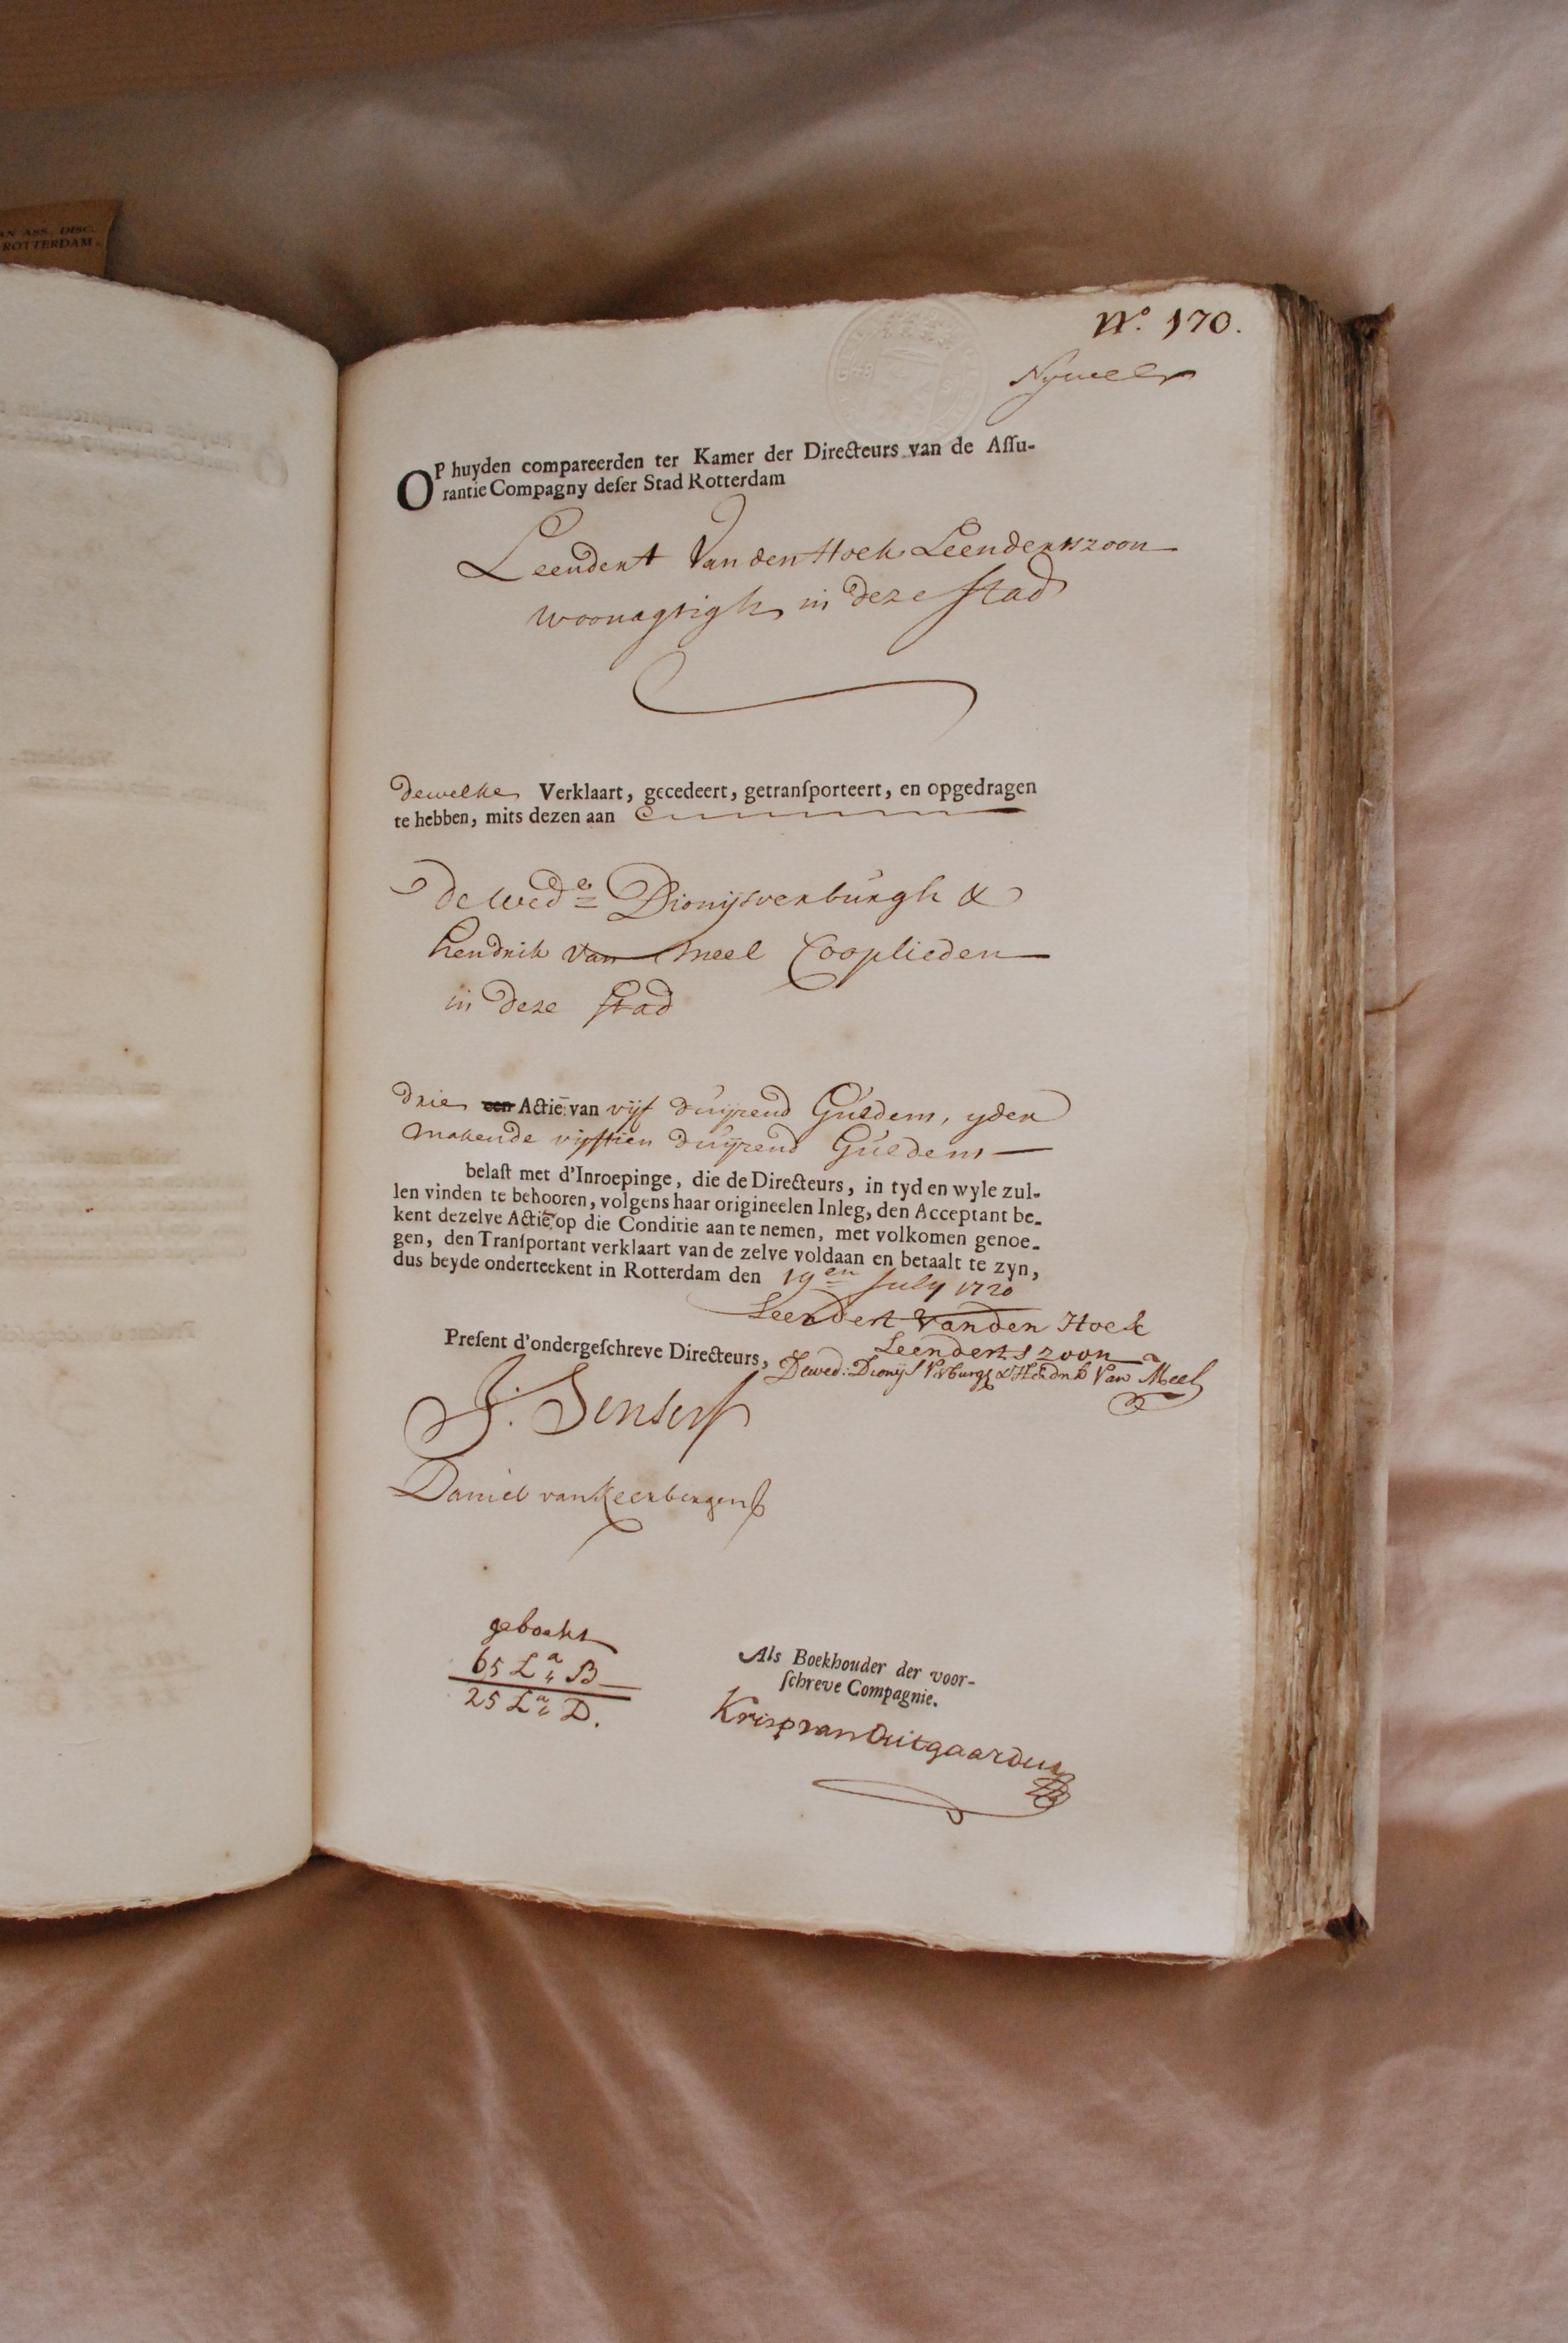 AN ASS. DISC.
ROTTERDAM
No. 170.
OP huyden compareerden ter Kamer der Directeurs van de Assu-
rantie Compagny deser Stad Rotterdam
Leendert Van den Hoek Leendertszoon
woonagtigh in deze stad
dewelke Verklaart, gecedeert, getransporteert, en opgedragen
te hebben, mits dezen aan
de wede Dionijs verburgh &
hendrik van meel Cooplieden
in deze stad
drie een Actie: van vijf duijzend Guldens, yder
makende vijftien duijzend Guldens
belast met d'Inroepinge, die de Directeurs, in tyd en wyle zul-
len vinden te behooren, volgens haar origineelen Inleg, den Acceptant be-
kent dezelve Actie op die Conditie aan te nemen, met volkomen genoe-
gen, den Transportant verklaart van de zelve voldaan en betaalt te zyn,
dus beyde onderteekent in Rotterdam den 19en July 1720
Leendert Vanden Hoek
Leendertszoon
Present d'ondergeschreve Directeurs,
Dewed: Dionijs Verburgh & Hendrik Van Meel
J. Senserf
Daniel van Keerbergen
geboekt
65 La B
25 La D.
Als Boekhouder der voor-
schreve Compagnie.
Krisp van Outgaarden